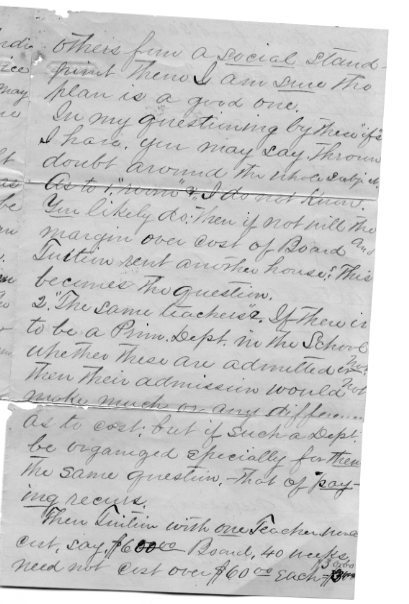 others from a social stand-
point then I am sure the
plan is a good one.
In my questioning by these "if's"
I have, you may say thrown
doubt around the whole subject.
As to 1. "room"? I do not know.
You likely do; then if not will the
margin over cost of Board and
Tuition rent another house? This
becomes the question.
2. The same teachers? If there is
to be a Prim. Dept. in the School
whether these are admitted or
then their admission would not
make much or any difference
as to cost: but if such a Dept.
be organized specially for them
the same question, that of pay-
ing recurs.
Then Tuition with one Teacher
cost, say $600 00 Board, 40 weeks,
need not cost over $60 00 each